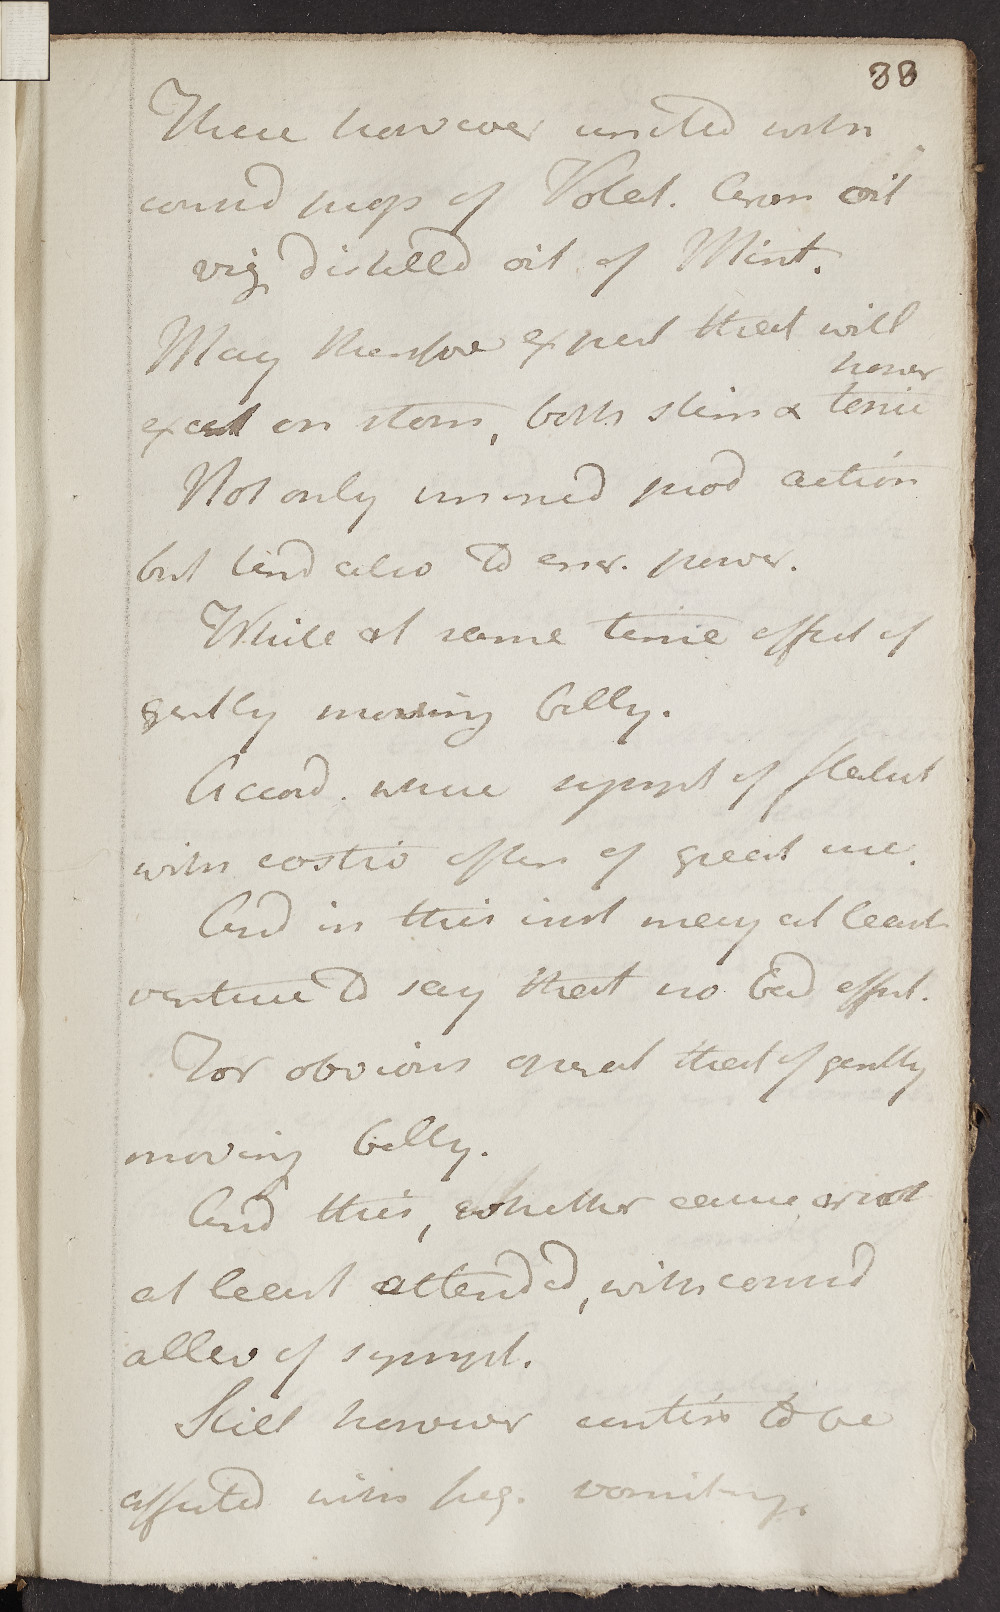 38
These however united with
consid prop of Volat. Arom oil
viz distilled oil of Mint.
May therefore expect that will
hower
exert on stom, both stim & tonic
Not only immed prod action
but tend also to encr. power.
While at same time effect of
gently moving belly.
Accord. where sympt of flatul
with costiv often of great use.
And in this inst may at least
venture to say that no bad effect.
For obvious operat that of gently
moving belly.
And this, whether cause or not
at least attended, with consid
allev of sympt.
Still however contin to be
affected with freq. vomiting.